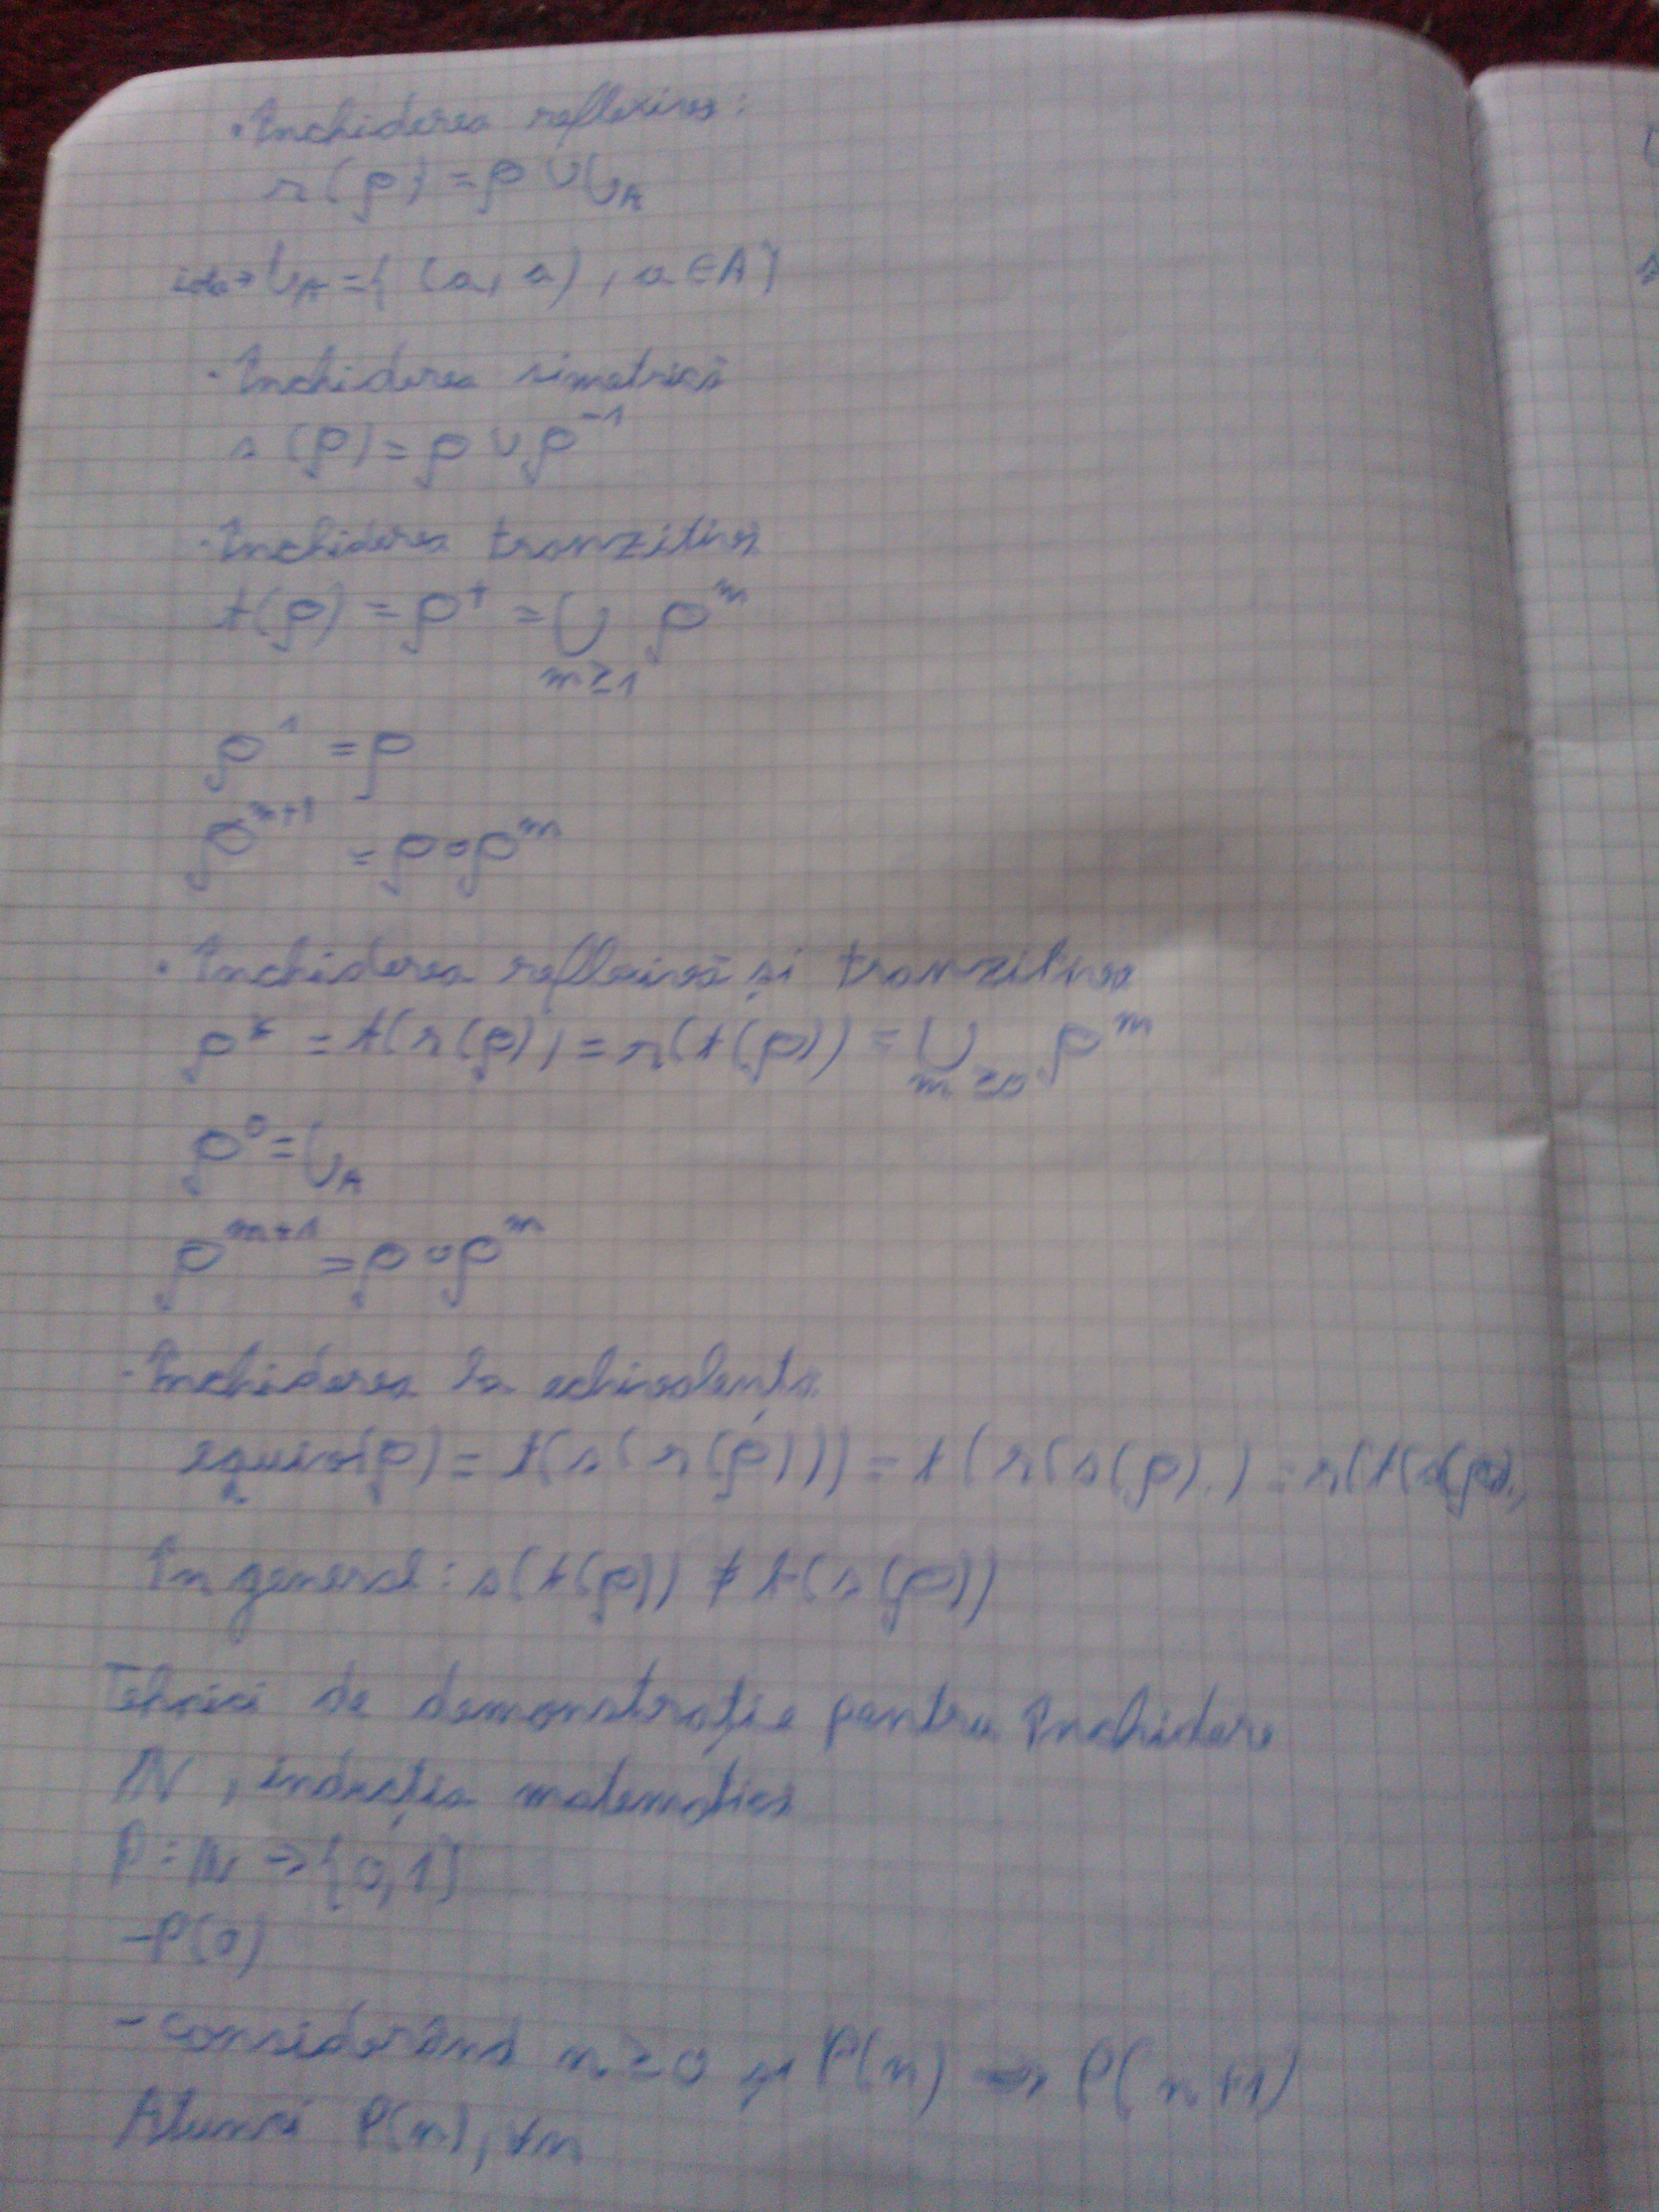 · Închiderea reflexivă:
r(ρ) = ρ ∪ ι_A
ι_A = { (a, a) , a ∈ A }
· Închiderea simetrică
s(ρ) = ρ ∪ ρ^-1
· Închiderea tranzitivă
t(ρ) = ρ^+ = ∪ ρ^m
m ≥ 1
ρ^1 = ρ
ρ^m+1 = ρ ∘ ρ^m
· Închiderea reflexivă și tranzitivă
ρ^* = t(r(ρ)) = r(t(ρ)) = ∪ ρ^m
m ≥ 0
ρ^0 = ι_A
ρ^m+1 = ρ ∘ ρ^m
· Închiderea la echivalență
equiv(ρ) = t(s(r(ρ))) = t(r(s(ρ))) = r(t(s(ρ)))
În general: s(t(ρ)) ≠ t(s(ρ))
Tehnici de demonstrație pentru închidere
ℕ, inducția matematică
P : ℕ → {0,1}
-P(0)
- considerând n ≥ 0 și P(n) ⇒ P(n+1)
Atunci P(n), ∀n